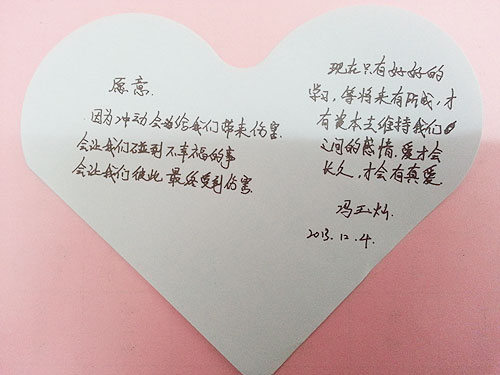 愿意.
因为冲动会给我们带来伤害.
会让我们碰到不幸福的事
会让我们彼此最终受到伤害
现在只有好好的
学习,等将来有所成,才
有资本去维持我们
之间的感情.爱才会
长久,才会有真爱
冯玉灿.
2013.12.4.